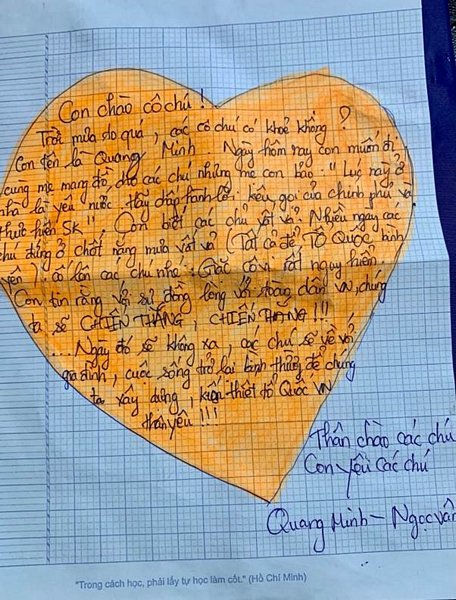 Con chào cô chú !
Trời mưa to quá, các cô chú có khoẻ không ?
Con tên là Quang Minh. Ngày hôm nay con muốn đi
cùng mẹ mang đồ cho các chú nhưng mẹ con bảo: "Lúc này ở
nhà là yêu nước. Hãy đáp lời kêu gọi của chính phủ và
thực hiện 5K". Con biết các chú vất vả. Nhiều ngày các
chú đứng ở chốt nắng mưa vất vả (Tất cả để Tổ Quốc bình
yên) cố lên các chú nhé. Giặc côvi rất nguy hiểm.
Con tin rằng với sự đồng lòng với toàn dân VN, chúng
ta sẽ CHIẾN THẮNG, CHIẾN THẮNG !!!
...Ngày đó sẽ không xa, các chú sẽ về với
gia đình, cuộc sống trở lại bình thường để chúng
ta xây dựng, kiến thiết tổ Quốc VN
thân yêu !!!
Thân chào các chú
Con yêu các chú
Quang Minh – Ngọc Vân
"Trong cách học, phải lấy tự học làm cốt." (Hồ Chí Minh)